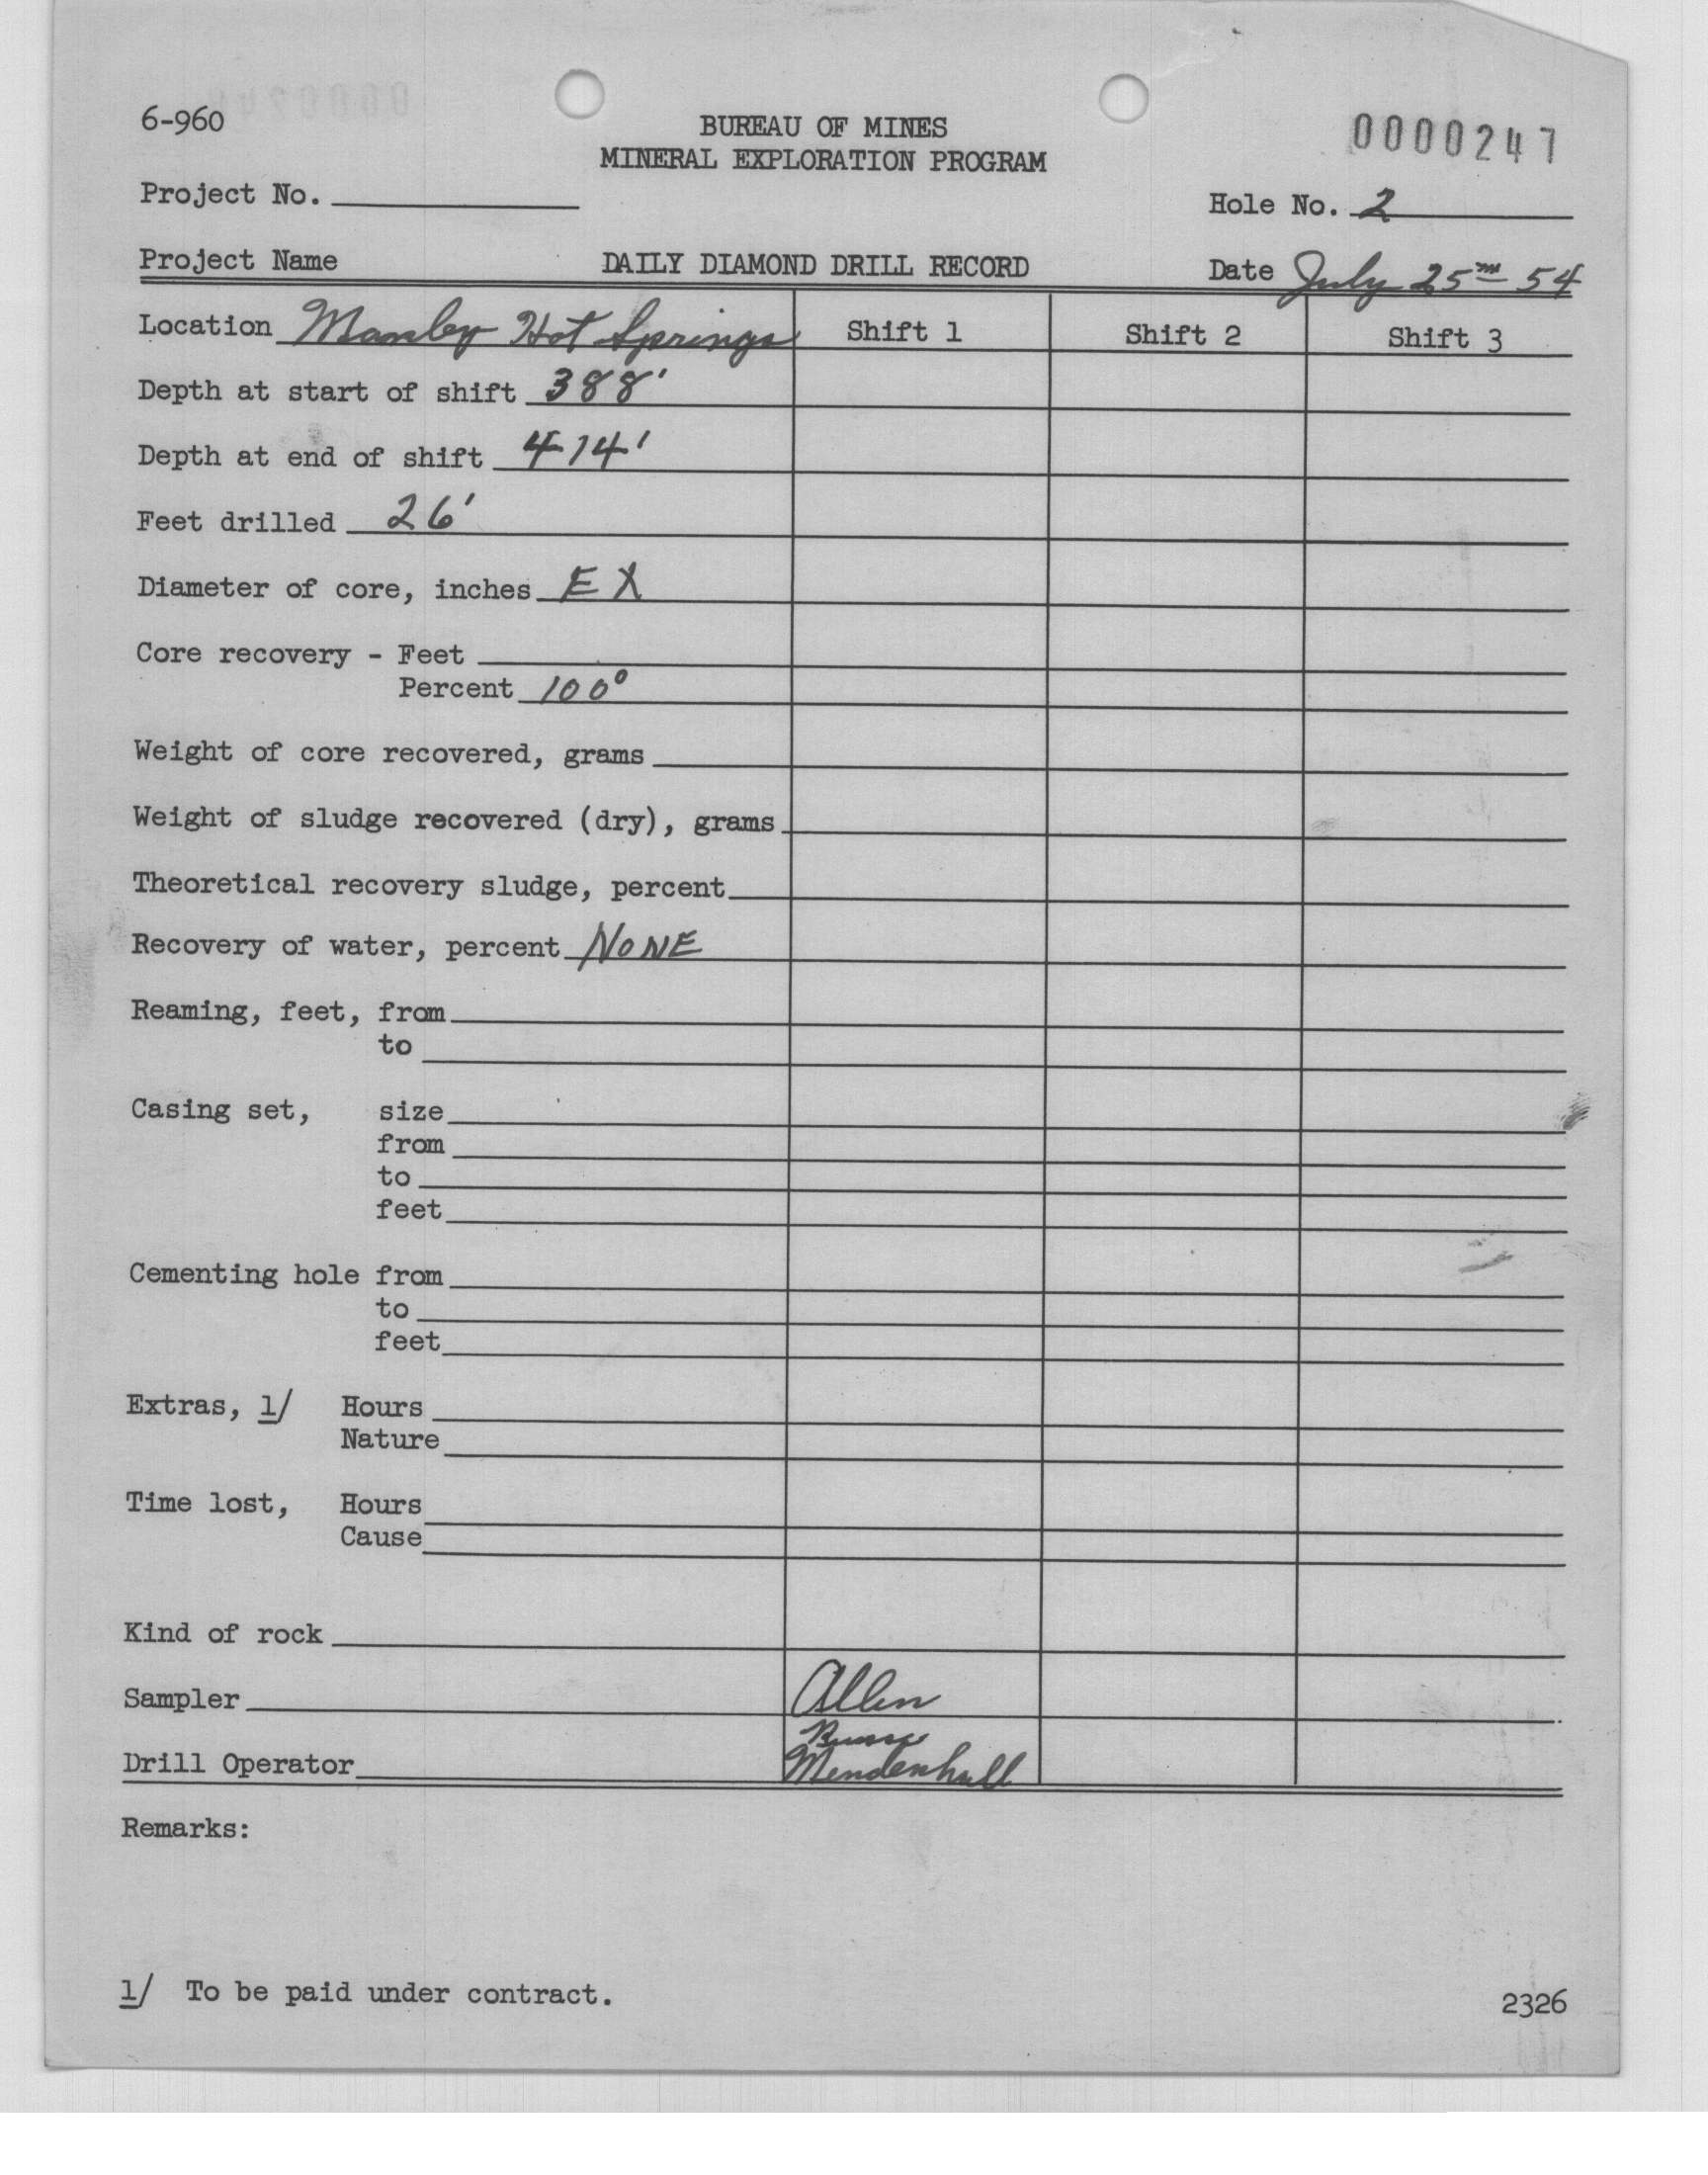 6-960
BUREAU OF MINES
0000247
MINERAL EXPLORATION PROGRAM
Project No.
Hole No. 2
Project Name DAILY DIAMOND DRILL RECORD Date July 25 54
Location Manley Hot Springs Shift 1 Shift 2 Shift 3
Depth at start of shift 388'
Depth at end of shift 414'
Feet drilled 26'
Diameter of core, inches EX
Core recovery - Feet
Percent 100°
Weight of core recovered, grams
Weight of sludge recovered (dry), grams
Theoretical recovery sludge, percent
Recovery of water, percent NONE
Reaming, feet, from
to
Casing set, size
from
to
feet
Cementing hole from
to
feet
Extras, 1/ Hours
Nature
Time lost, Hours
Cause
Kind of rock
Sampler Allen
Drill Operator Mendenhall
Remarks:
1/ To be paid under contract.
2326